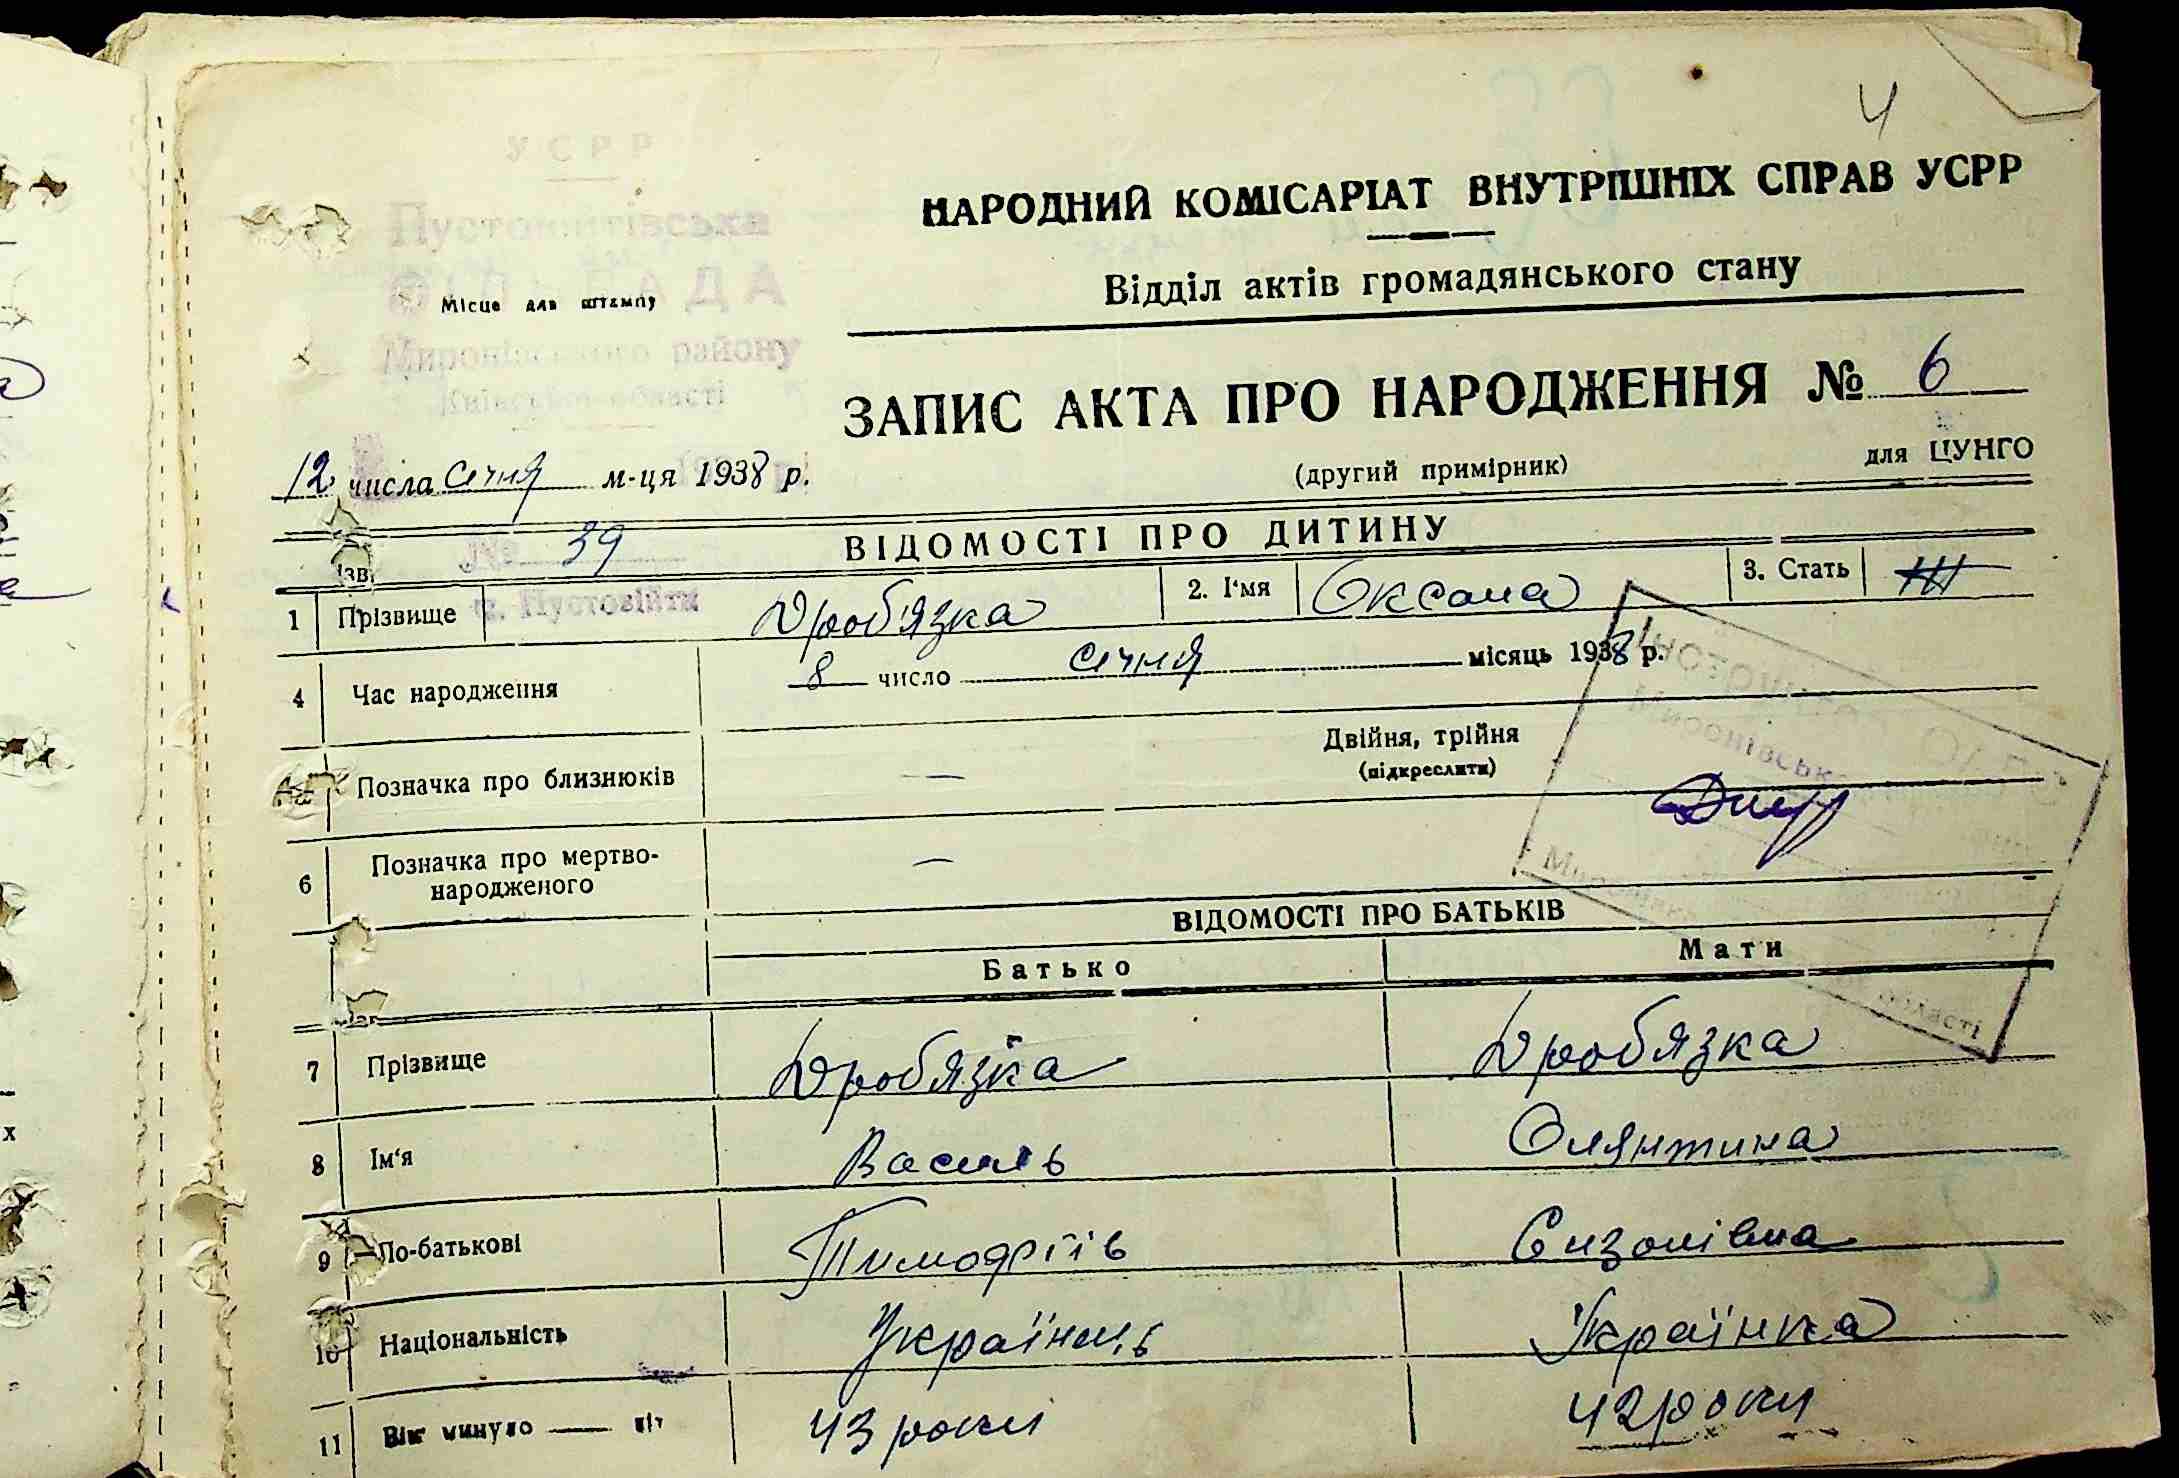 4
УСРР
Пустовитівська
СІЛЬРАДА
Миронівського району
Київської області
Місце для штампу
НАРОДНИЙ КОМІСАРІАТ ВНУТРІШНІХ СПРАВ УСРР
Відділ актів громадянського стану
ЗАПИС АКТА ПРО НАРОДЖЕННЯ № 6
12 числа січня м-ця 1938 р.
(другий примірник) для ЦУНГО
№ 39
ВІДОМОСТІ ПРО ДИТИНУ
с. Пустовійти
1 Прізвище Дроб'язка 2. І'мя Оксана 3. Стать Ж
4 Час народження 8 число січня місяць 1938 р.
Позначка про близнюків — Двійня, трійня
(підкреслити)
6 Позначка про мертво-
народженого —
ВІДОМОСТІ ПРО БАТЬКІВ
Батько Мати
7 Прізвище Дробязка Дробязка
8 Ім'я Василь Олянтина
9 По-батькові Тимофіїв Сизонівна
10 Національність Українець Українка
11 Вік минуло — літ 43 роки 42 роки
Миронівськ
області
х